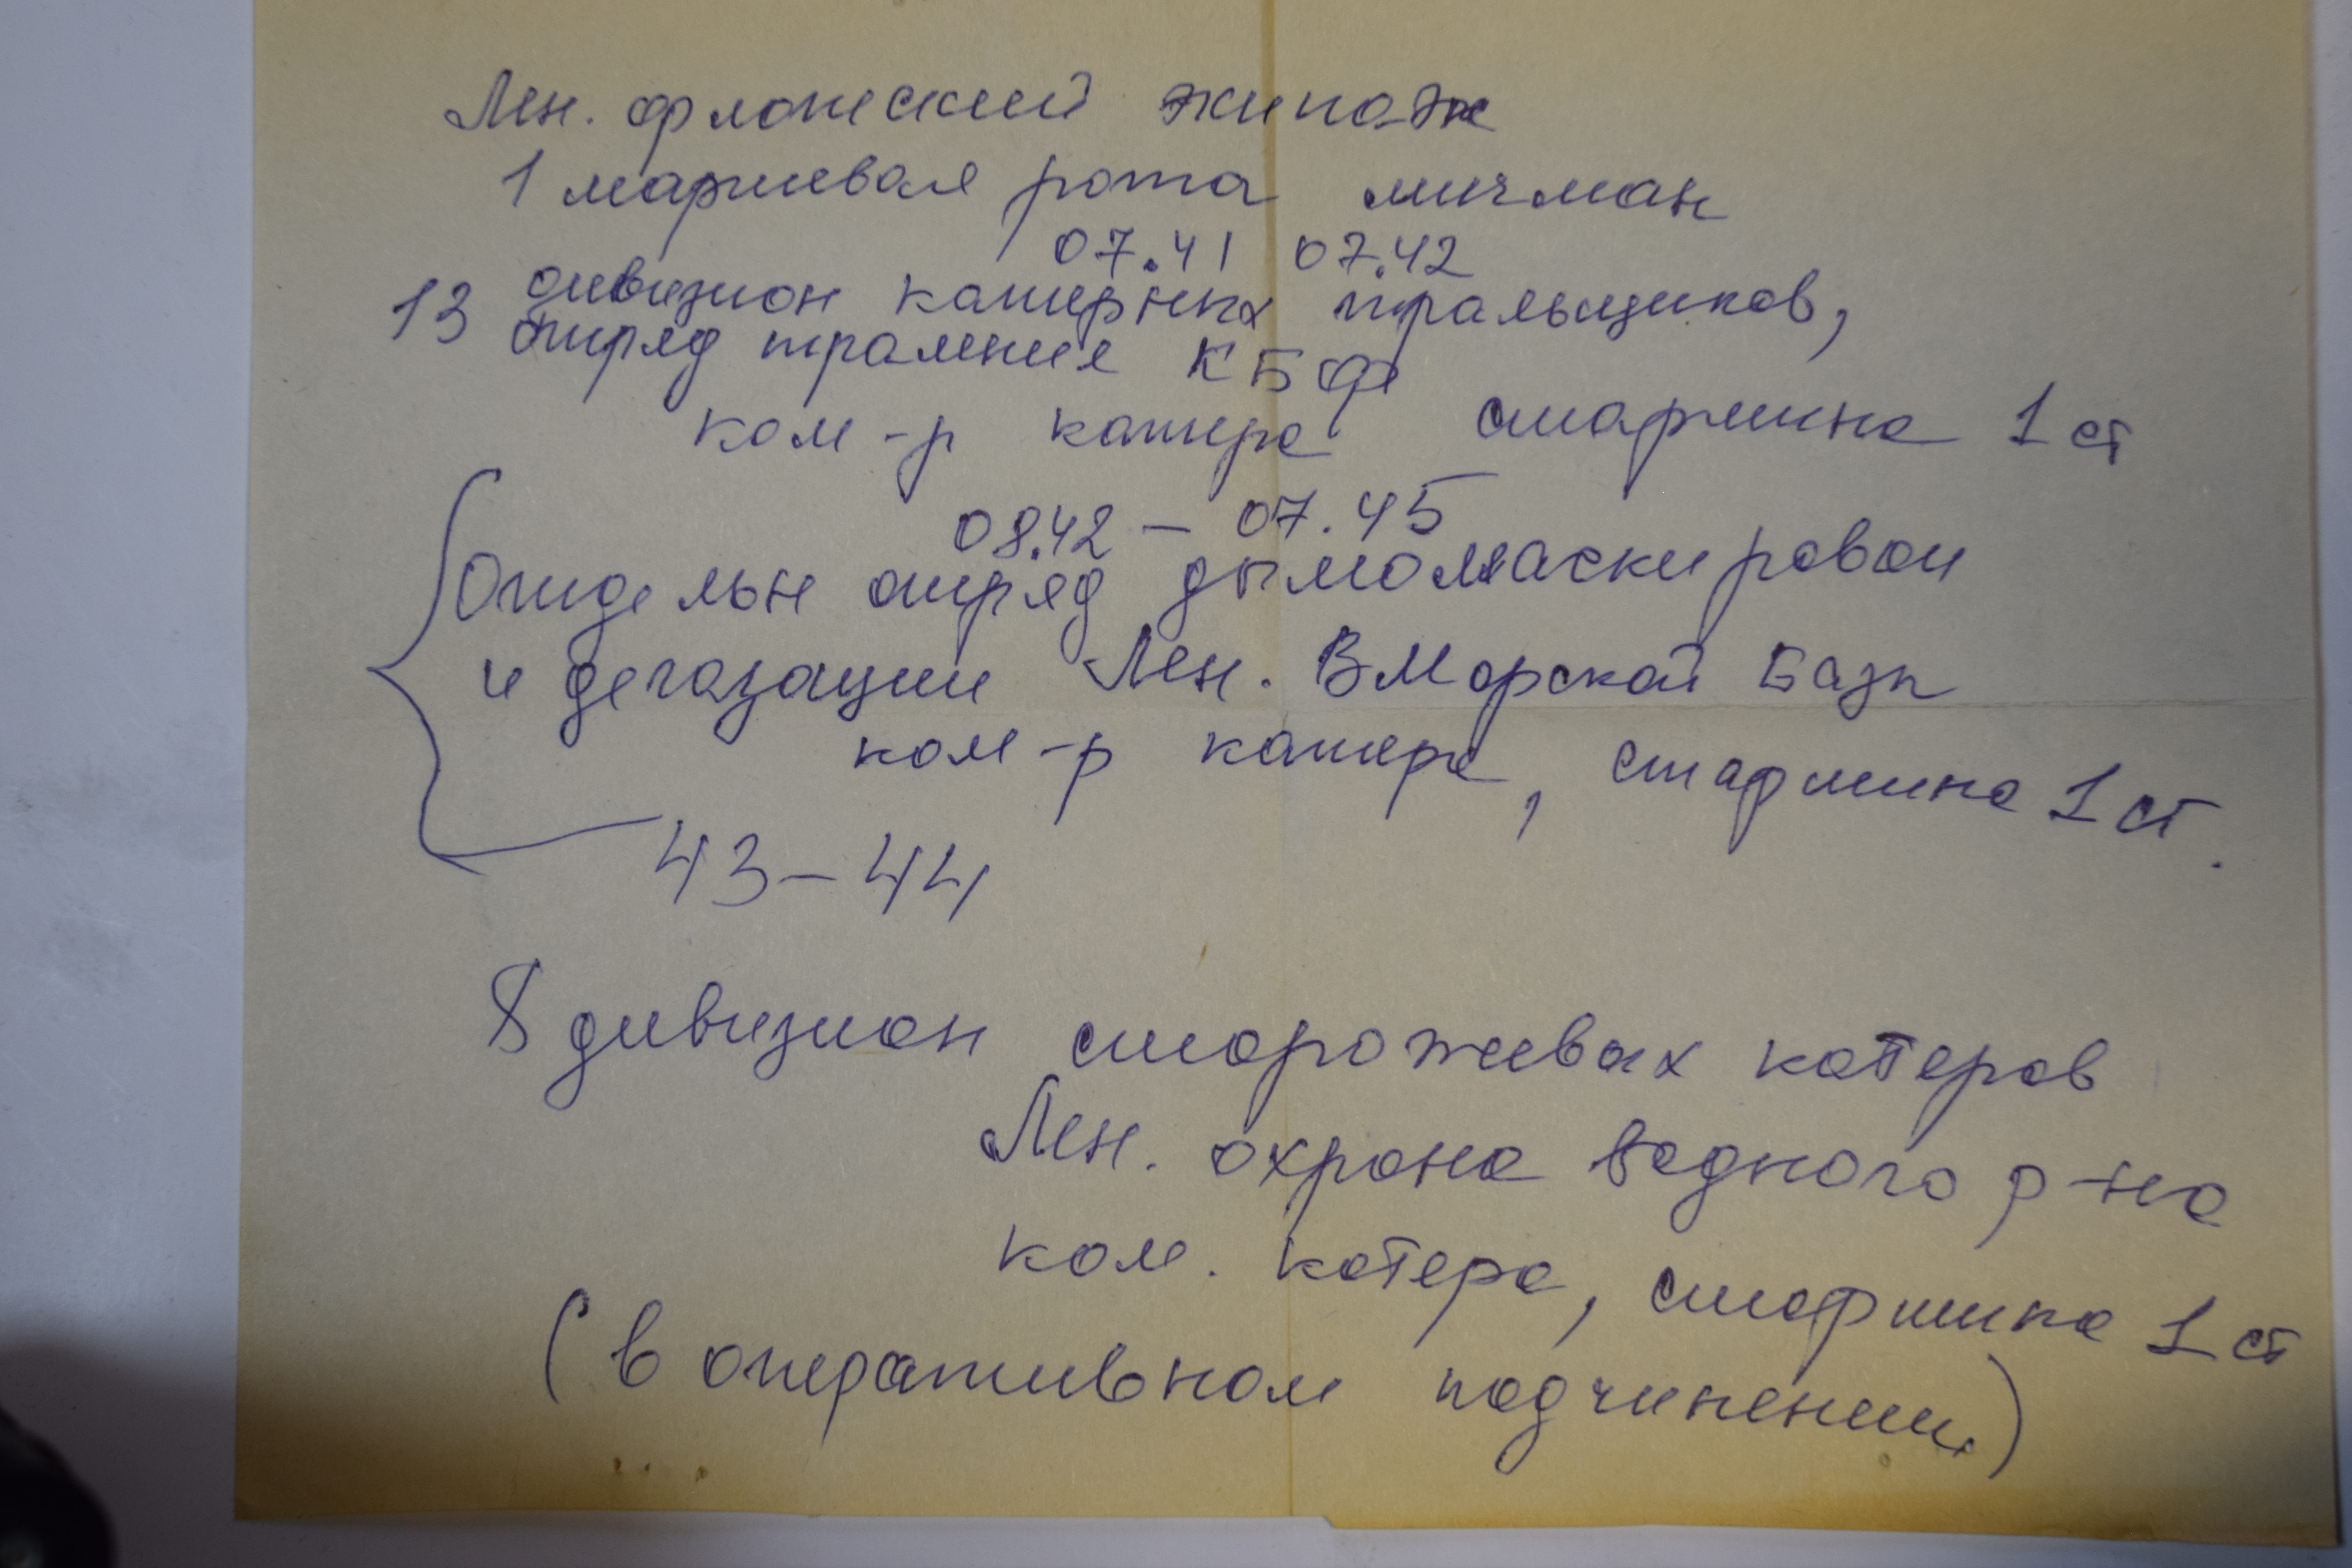 Лен. флотский экипаж
1 маршевая рота мичман
07.41 07.42
13 дивизион катерных тральщиков,
отряд траления КБФ
ком-р катера старшина 1 ст
08.42 – 07.45
Отдельн отряд дымомаскировои
и дегазации Лен. ВМорской Базы
ком-р катера, старшина 1 ст.
43–44
8 дивизион сторожевых катеров
Лен. охрана водного р-на
ком. катера, старшина 1 ст
(в оперативном подчинении.)